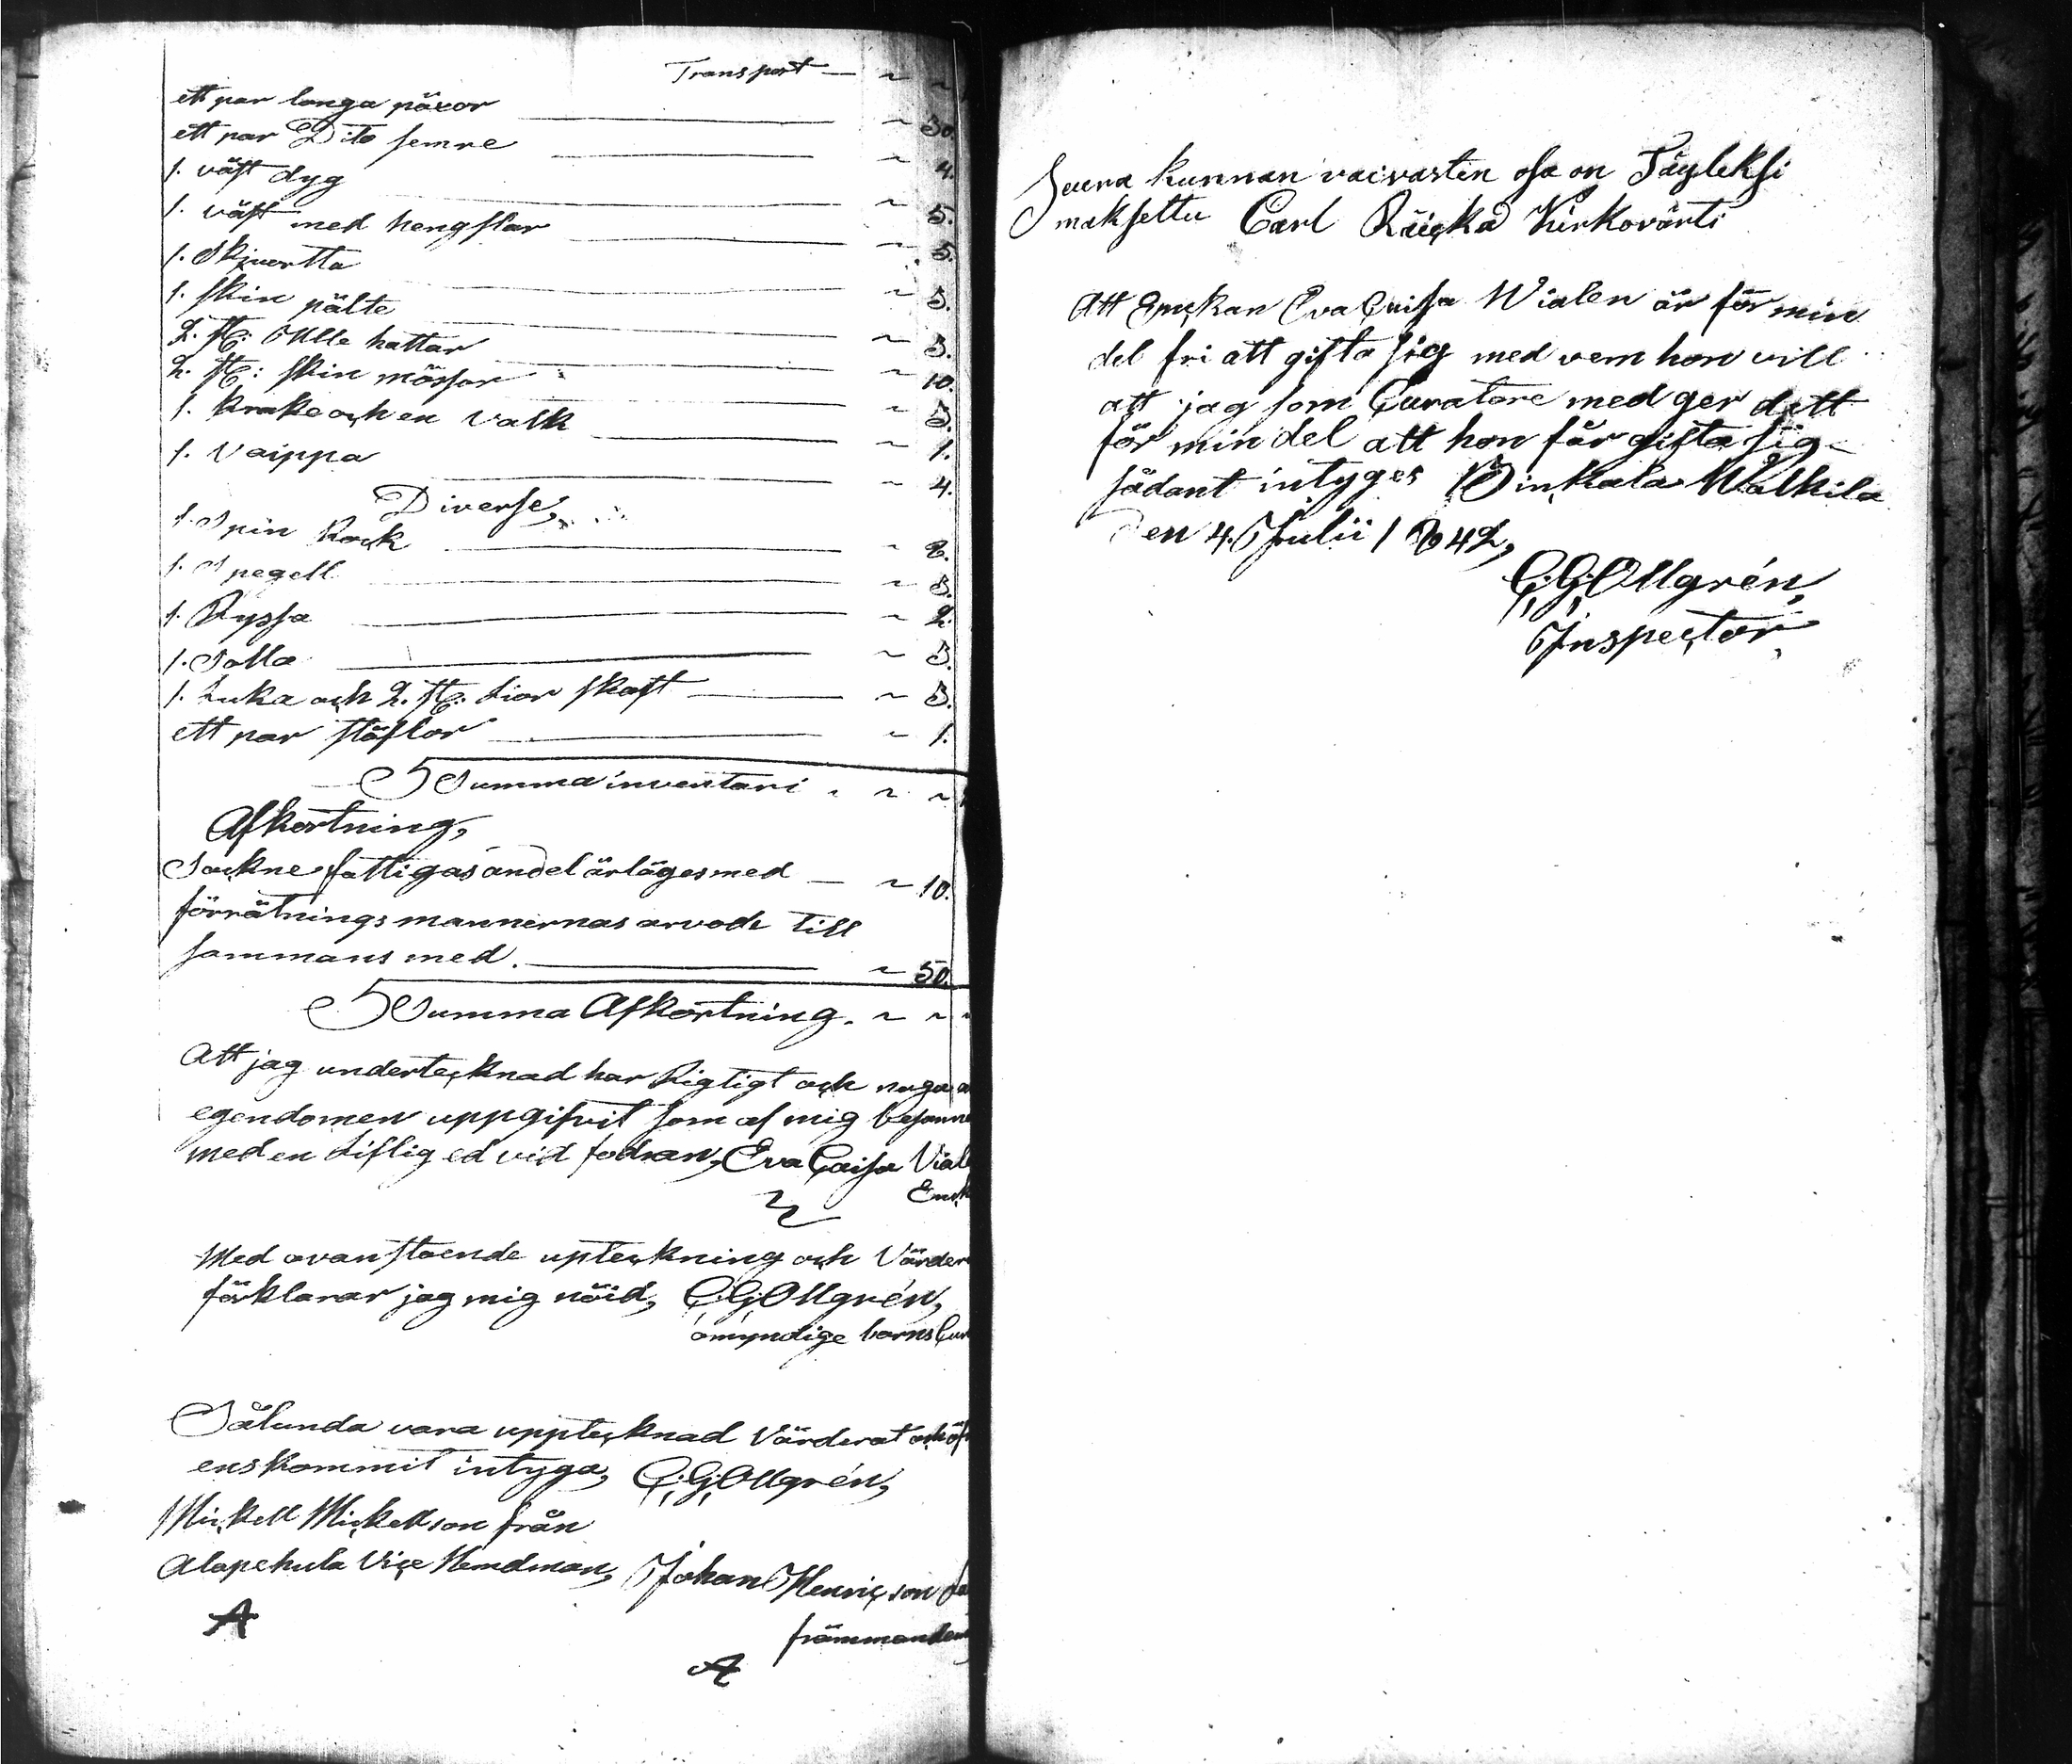 Transport — ~ ~
ett par långa päxor ~ 30.
ett par Dito semre ~ 4.
1. väst dyg ~ 5.
1. väst med hengslar ~ 5.
1. Skjuortta ~ 3.
1. skin pälte ~ 3.
2. st: Ulle hattar ~ 10.
2. st: skin mössor ~ 3.
1. krake och en valk ~ 1.
1. Vaippa ~ 4.
Diverse,
1. Spin Rock ~ 8.
1. Spegell ~ 3.
1. Ryssa ~ 2.
1. Solla ~ 3.
1. Luka och 2. st: Lior skaft ~ 3.
ett par stöflor ~ 1.
Summa inventari ~ ~
Afkortning,
Sockne fattigas andel ärläges med — ~ 10.
förrätnings mannernas arvode till
sammans med. ~ 50.
Summa Afkortning. ~ ~
Att jag undertecknad har Rigtigt och noga
egendomen uppgifvit som af mig
med en Liflig ed vid fodran, Eva Caisa Vial
Enck
Med ovanstående upteckning och Värder
förklarar jag mig nöid, C:G:Ollgrén,
omyndige barns Cur
Sålunda vara upptecknad Värderat och öf
ens kommit intyga, C:G:Ollgrén,
Mickell Mickellson från
Alapekula Viçe Nemdman, Johan Henricson
främmande
A
A
Seura kunnan vaivasten osa on Täyleksi
maksettu Carl Räicka Kirkovärti
Att Enckan Eva Caisa Wialen är för min
del fri att gifta sig med vem hon vill
att jag som Curatore med ger dett
för min del att hon får gifta sig
sådant intyges Vinkala Walkila
den 4. Julii 1842,
C:G:Ollgrén,
Inspector